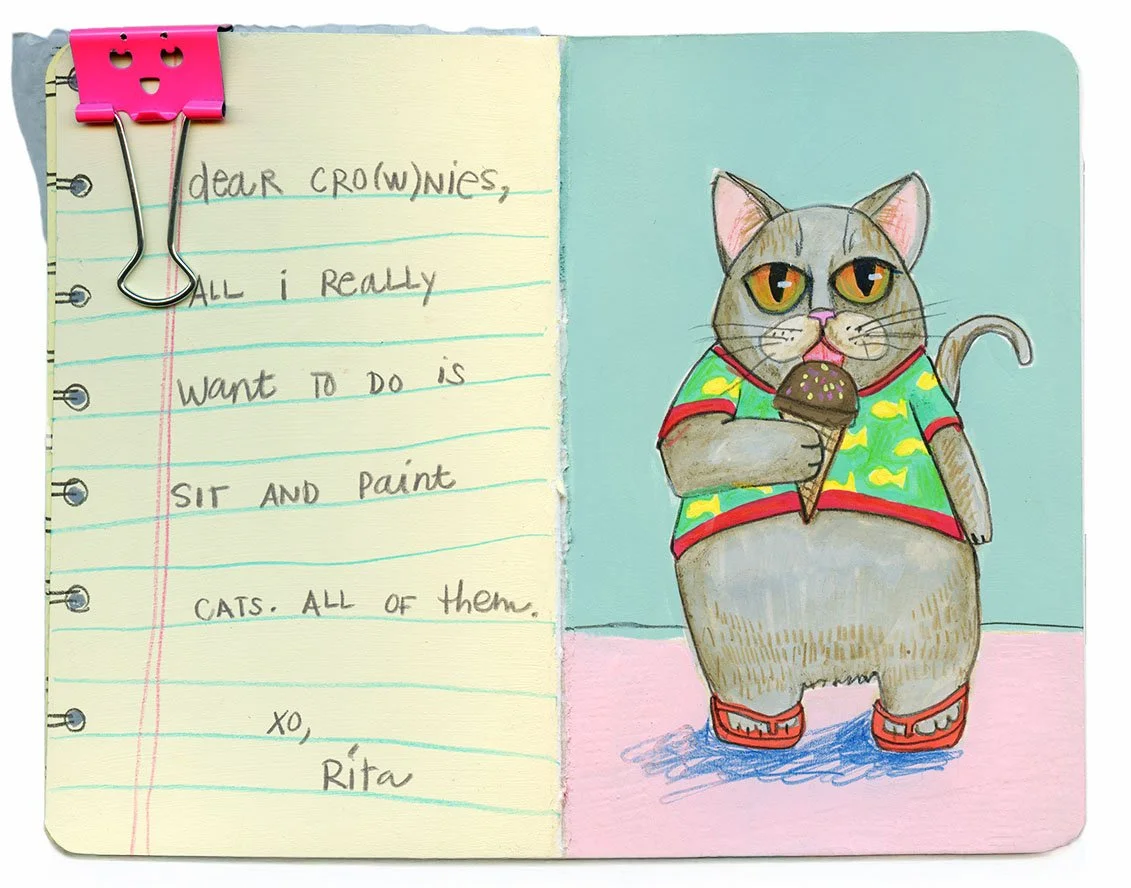 deaR CRO(W)Nies,
ALL i Really
want TO DO is
SIT AND Paint
CATS. ALL OF them.
XO,
Rita